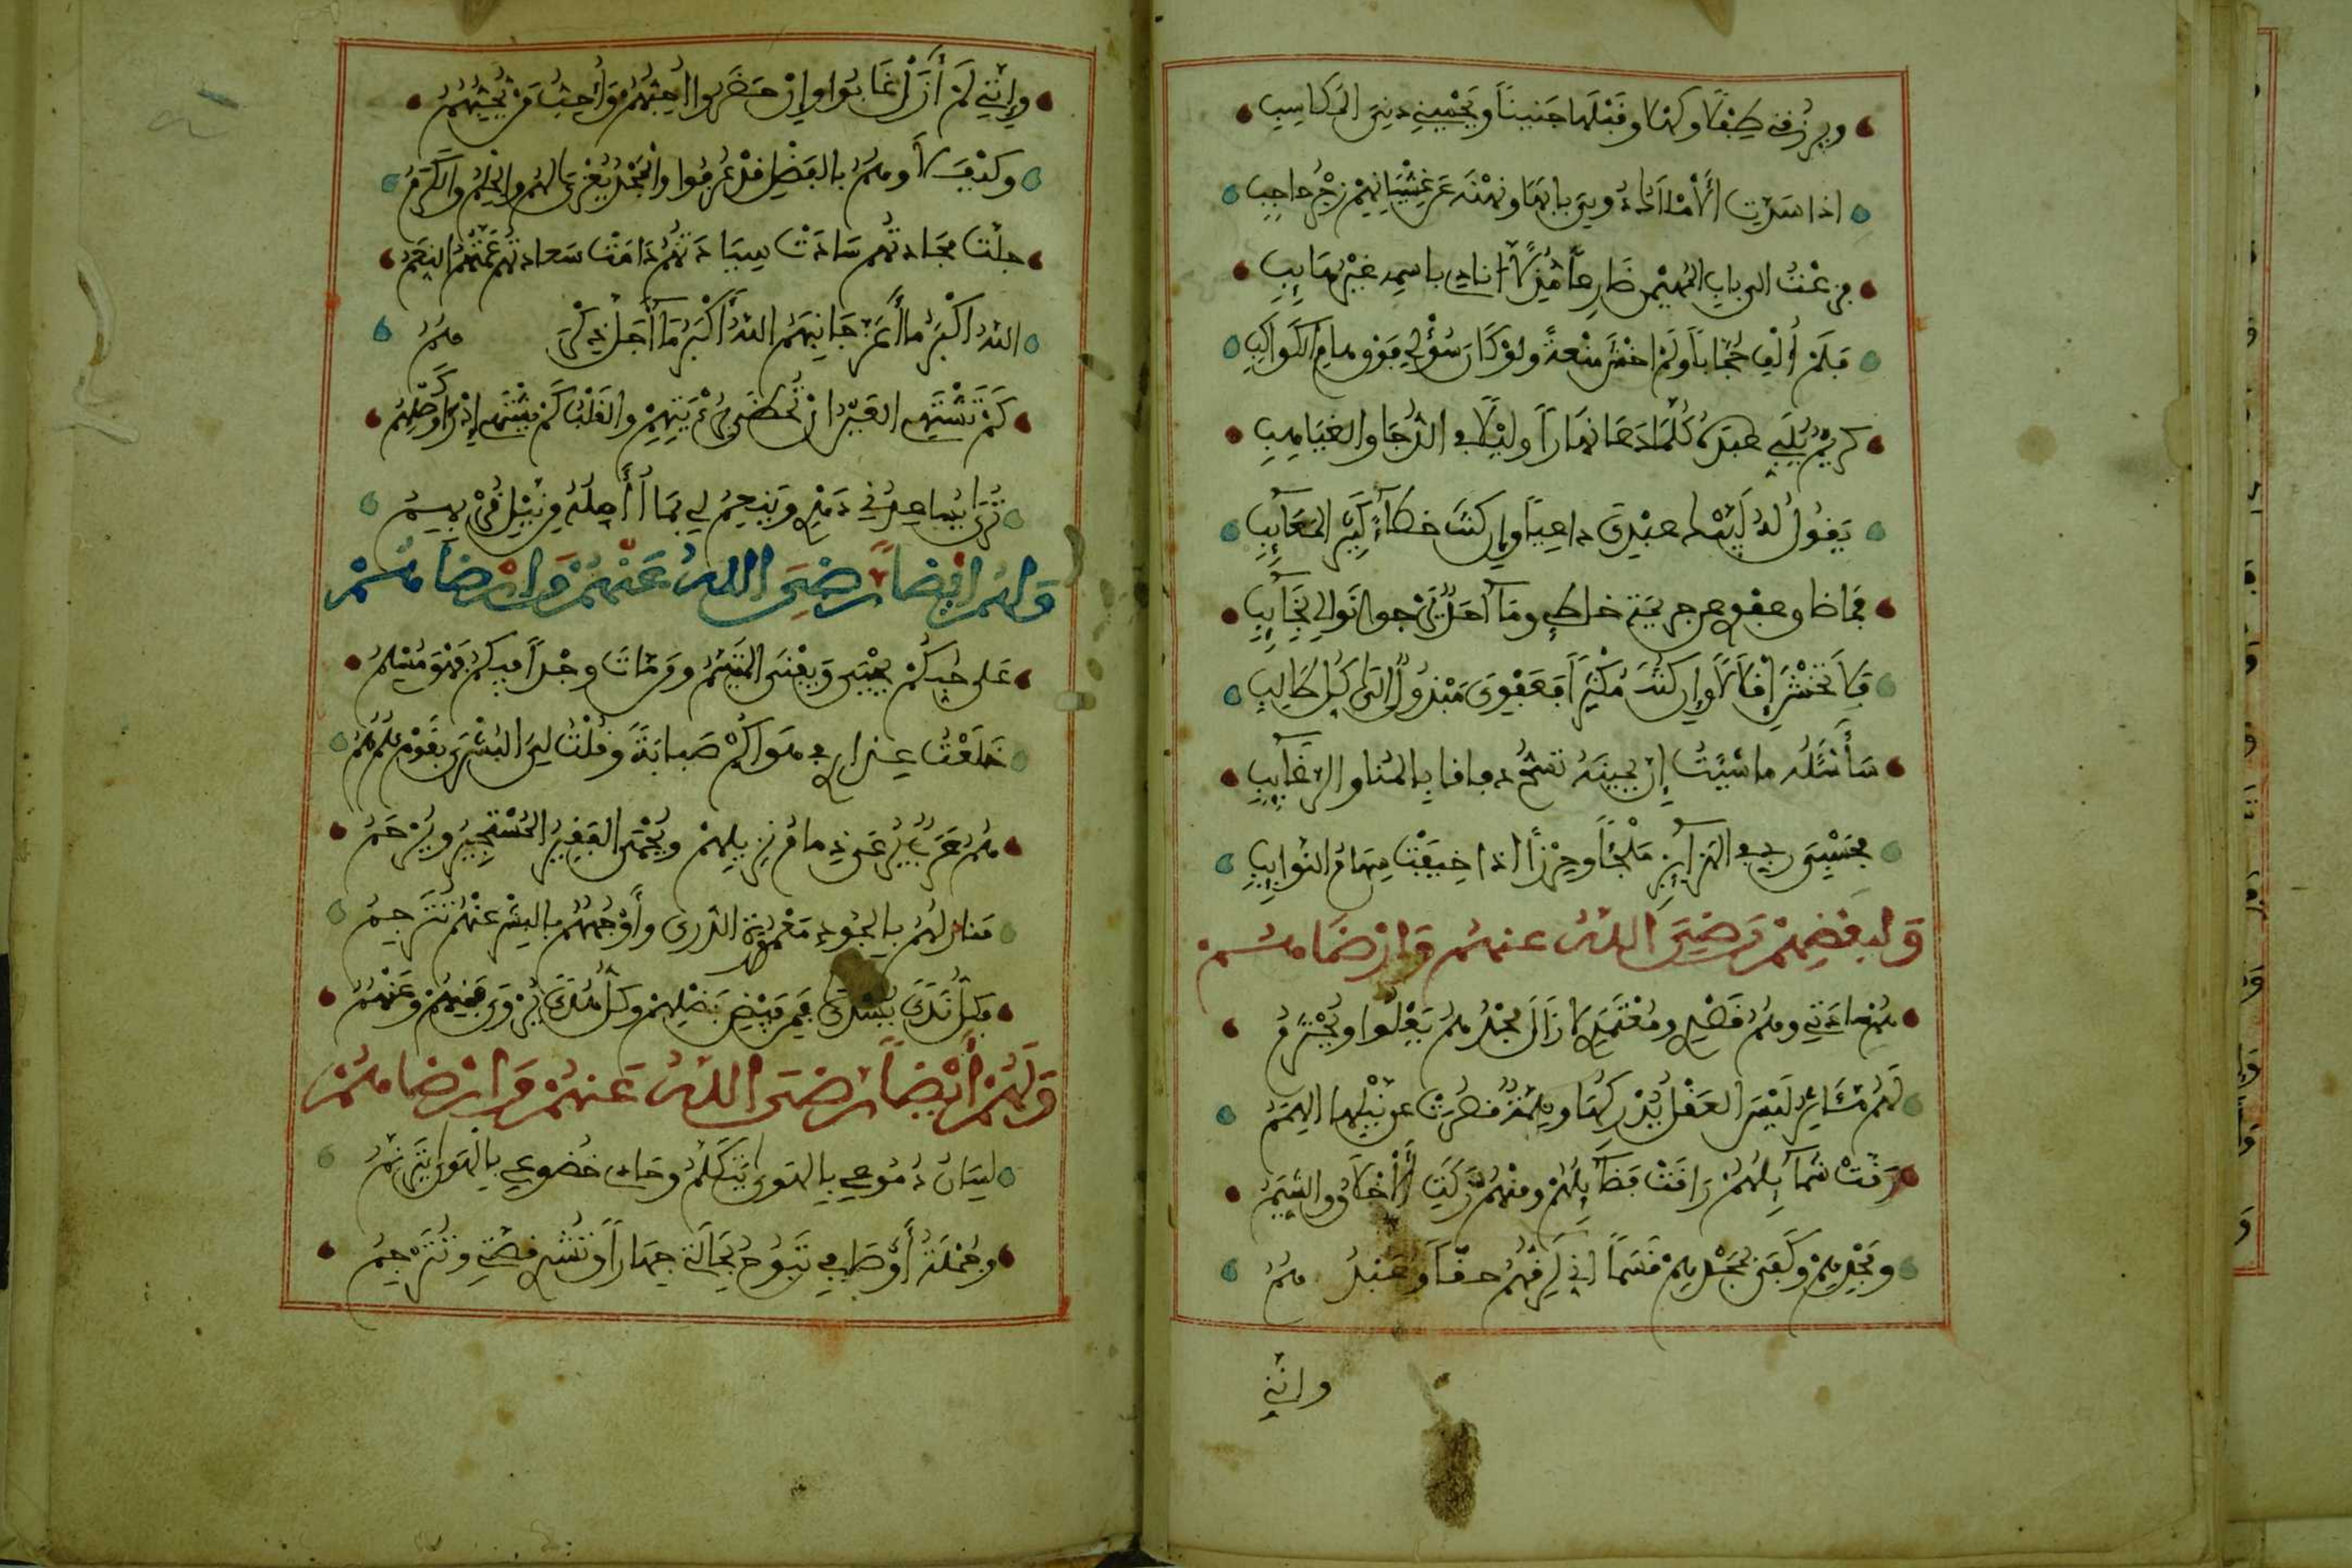 ويرزقه طفلا وكهلا وقبلها جنينا ويحميه دنيّ المكاسب
اذا سدّت الأملاك دوني بابها ونهنه عن غشيانهم زجر حاجب
فزعت الى باب المهيمن ضارعاً مذلاً انادي باسمه غير هائب
فلم ألف حجّاباً ولم اخش منعة ولو كان سؤلي فوق هام الكواكب
كريم يلبي عبده كلّما دعا نهاراً وليلا في الدّجا والغياهب
يقول له لبيك عبدي داعياً وإن كنت خطّاءً كثير المعائب
فما ضاق عفوي عن جريمة خاطئ وما أحد يرجو نوالي بخائب
فلا تخش إقلالا وإن كنت مكثراً فعفوي مبذول الى كل طالب
سأسئله ما شئت إن يمينه تسحّ دفاقا بالمنا والرغائب
فحسبي ربي في الهزائز ملجئاً وحرزاً اذا خيفت سهام النوائب
ولبعضهم رضي الله عنهم وارضاهم
هم سادتي وهم قصدي ومعتمدي لا زال مجدهم يعلوا ويحترم
لهم مئاثر ليس العقل يدركها وهمّة قصرت عن نيلها الهمم
رقت شمائلهم راقت فضائلهم ومنهم زكت الأخلاق والشيم
ومجدهم وكفى بمجدهم قسماً اني لرقّهم حقّاً وعبدهم
وانّني
وإنّني لم أزل إن غابوا وإن حضروا احبّهم وأحبّ من يحبّهم
وكيف لا وهم بالفضل قد عرفوا والمجد يعزى لهم والحلم والكرم
جلّت مجادتهم سادت سيادتهم دامت سعادتهم عمتهم النعم
الله اكبر ما أعزّ جانبهم الله أكبر ما أجلّ ذكرهم
كم تشتهي العين ان تحظى برؤيتهم والقلب كم يشتهي إذراك وصلهم
ترى يساعدني دهري وينعم لي بما أأمله ونيل قربهم
ولهم ايضاً رضي الله عنهم وارضاهم
على حبكم يحيى ويفنى المتيّم ومن مات وجداً فيكم فهو مسلم
خلعت عذاري في هواكم صبابة وقلت لي البشرى بقوم هم هم
هم عرب يرعى ذمام نزيلهم ويحمى الفقير المستجير ويرحم
منازلهم بالجود معمورة الذرى وأوجههم بالبشر عنهم تترجم
فكل ندى يسدى فمن فيض فضلهم وكل هدى يروى فمنهم وعنهم
ولهم أيضاً رضي الله عنهم وارضاهم
لسان دموعي بالهوى يتكلم وحال خضوعي بالهوى يترنّم
وجملة أوصافي تبوح بحالتي جهاراً وتنشي قصّتي وتترجم